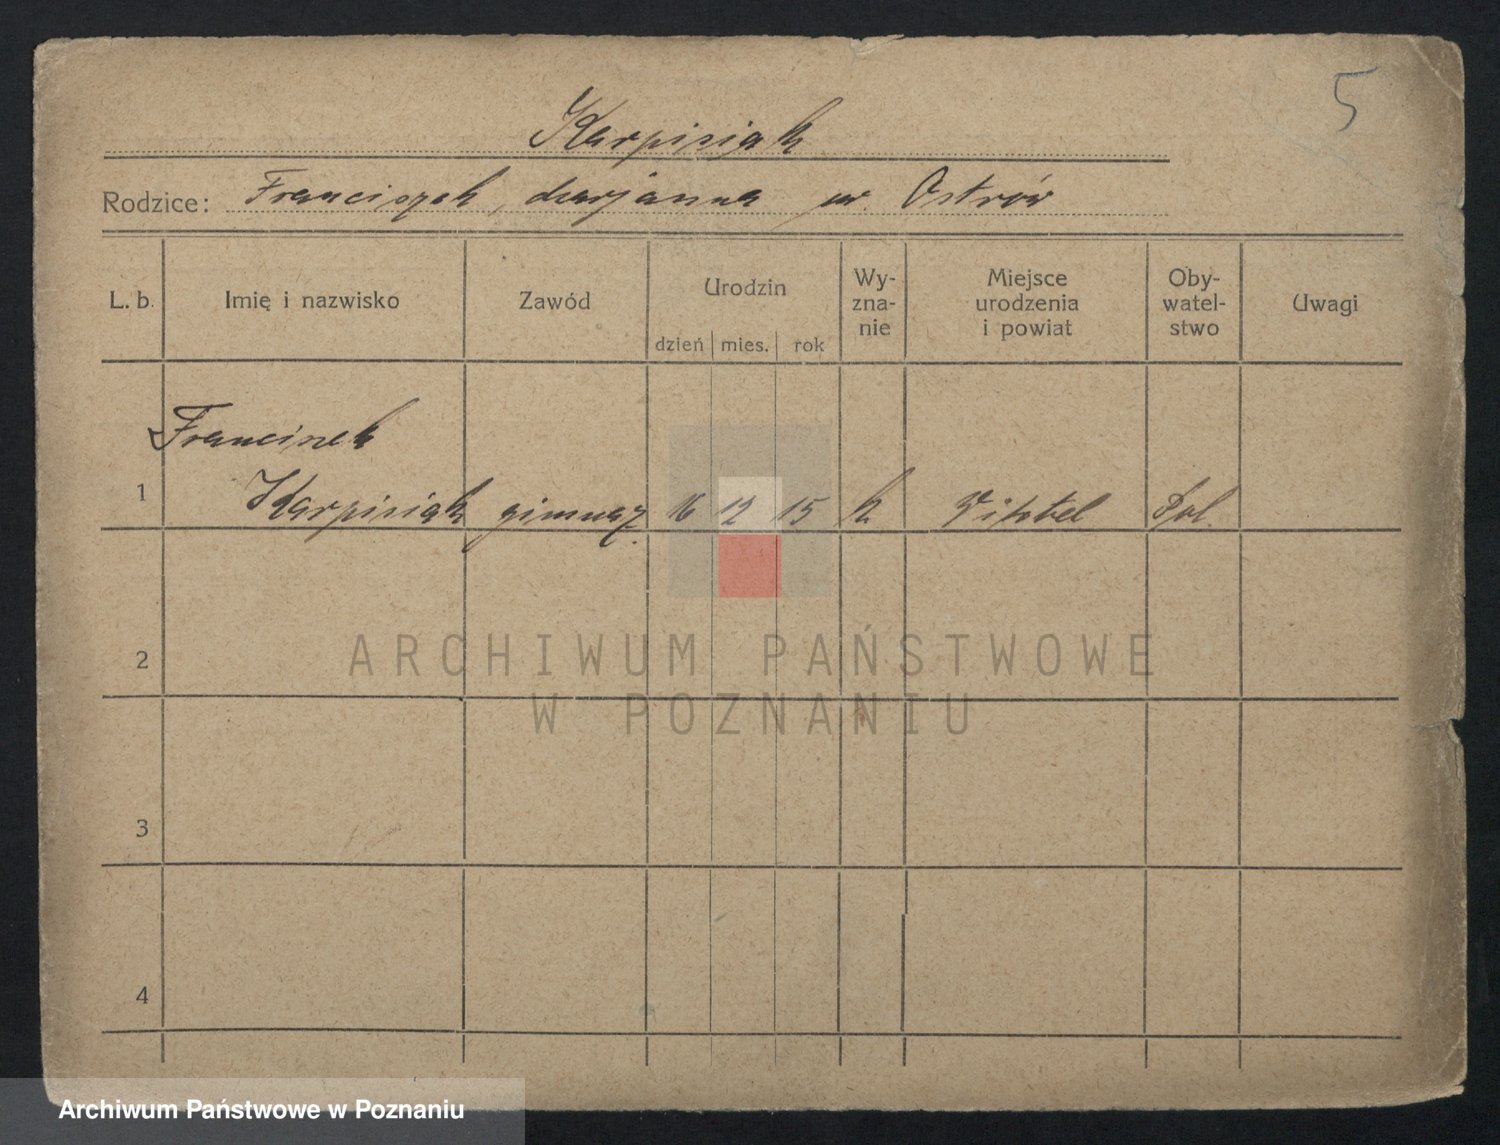 5
Karpisiak
Rodzice: Franciszek, Marjanna w. Ostrów
L. b. Imię i nazwisko Zawód Urodzin Wy- Miejsce Oby- Uwagi
zna- urodzenia watel-
nie i powiat stwo
dzień mies. rok
Franciszek
1 Karpisiak gimnaz. 16 12 15 k Pol.
2
3
4
ARCHIWUM PAŃSTWOWE
W POZNANIU
Archiwum Państwowe w Poznaniu